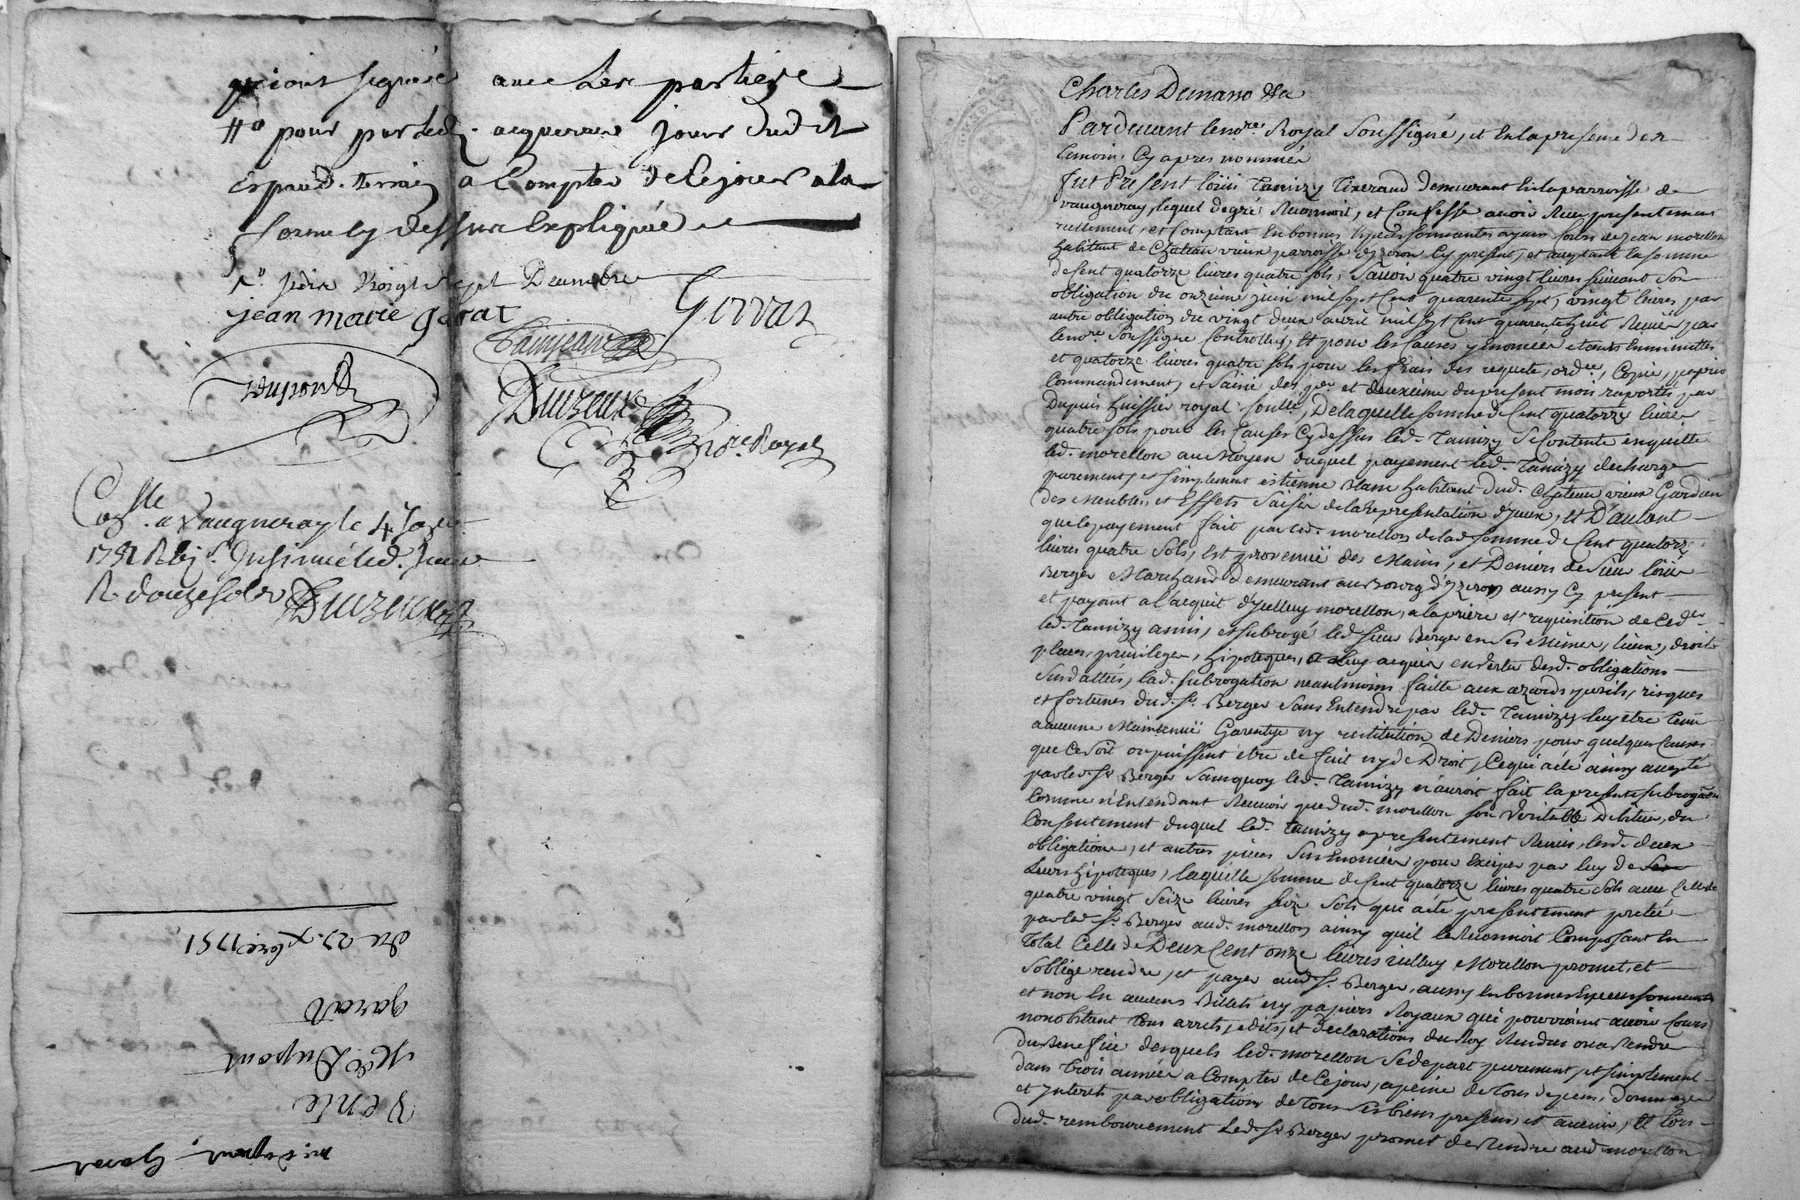 qui ont signé avec les parties
Ho pour par led. acquereur jouir dudit
espaud. terrain a Compter de Cejour a la
forme cy dessus Expliquée
vingt sept Decembre
jean marie garat
Gorrat
Dainjean
Dupont
Duizeux
no.re Royal
Con.lle a Vaugneray le 4 Janv.er
1751 R. Insinué led. jour
R. douze sols Duizeux
du 27. xbre 1751
garat
Me Dupont
Vente
Charles Demano
Pardevant le no.re Royal Soussigné, et En la presence des
temoins Cy apres nommés
fut Present Loüis Tamizy Tixerand demeurant En la parroisse de
vaugneray, lequel de gré Reconnoit, et Confesse avoir Reçu presentement
reellement, et Comptant En bonnes Especes sonnantes ayant Cours de Jean morellon
habitant de Chateau vieux parroisse d'yzeron Cy present, et acceptant la somme
de Cent quatorze livres quatre sols, Savoir quatre vingt livres suivant son
obligation du onzieme juin mil sept Cent quarente sept, vingt livres par
autre obligation du vingt deux avril mil sept Cent quarente huit Reçuës par
le no.re Soussigné Controllées, Et pour les causes y enoncées
et quatorze livres quatre sols pour les frais des requete, ord.ce, Copie,
Commandement, et Saisie des p.er et deuxieme du present mois raportés par
Dupuis huissier royal, De laquelle somme de Cent quatorze livres
quatre sols pour les Causes Cy dessus led. Tamizy se Contente en quitte
led. morellon au Moyen duquel payement led. Tamizy decharge
purement, et simplement estienne Blanc habitant dud. Chateau vieux Gardien
des Meubles, et Effets Saisis de la representation d'yceux, et D'autant
que le payement fait par led. morellon de lad. somme de Cent quatorze
livres quatre Sols, est provenuë des Mains, et Deniers de sieur loüis
Berger Marchand Demeurant au Bourg d'yzeron aussy Cy present
et payant a l'acquit d'yCelluy morellon, a la priere et requisition de Ced.er
led. Tamizy a mis, et subrogé led. sieur Berger en ses Mêmes, lieux, droits
places, privileges, hipoteques, a luy acquis en vertu desd. obligations
Susdattées, lad. subrogation neantmoins faitte aux azards perils, risques
et fortunes dud. Sr. Berger Sans Entendre par led. Tamizy luy etre tenu
d'aucune Maintenuë Garentye ny restitution de Deniers pour quelques Causes
que Ce soit ou puissent etre de fait ny de Droit, Ce qui a été ainsy accepté
par led. Sr. Berger Sans quoy led. Tamizy n'auroit fait la presente subrogaon
Comme n'Entendant Recevoir que dud. morellon son Veritable Debiteur, du
Consentement duquel led. Tamizy a presentement Remis, lesd. deux
obligations, et autres pieces Sus Enoncées pour Exciper par luy de
Leurs hipoteques, laquelle somme de Cent quatorze livres quatre sols avec Celle de
quatre vingt Seize livres seize Sols qui a été presentement pretée
par led. Sr. Berger aud. morellon ainsy quil le Reconnoit Composant En
Total Celle de Deux Cent onze livres icelluy Morellon promet, et
s'oblige rendre, et payer aud. Sr. Berger, aussy En bonnes Especes sonnantes
et non En aucuns Billets ny papiers Royaux qui pourroient avoir Cours
nonobstant tous arrets, edits, et declarations du Roy Rendus ou a Rendre
du Benefice desquels led. morellon Se depart purement, et simplement
dans trois années a Compter de Cejour, a peine de tous depens, dommages
et Interets par obligation de tous ses biens presens, et avenir, Et lors
dud. remboursement Led. Sr. Berger promet de Rendre aud. morellon